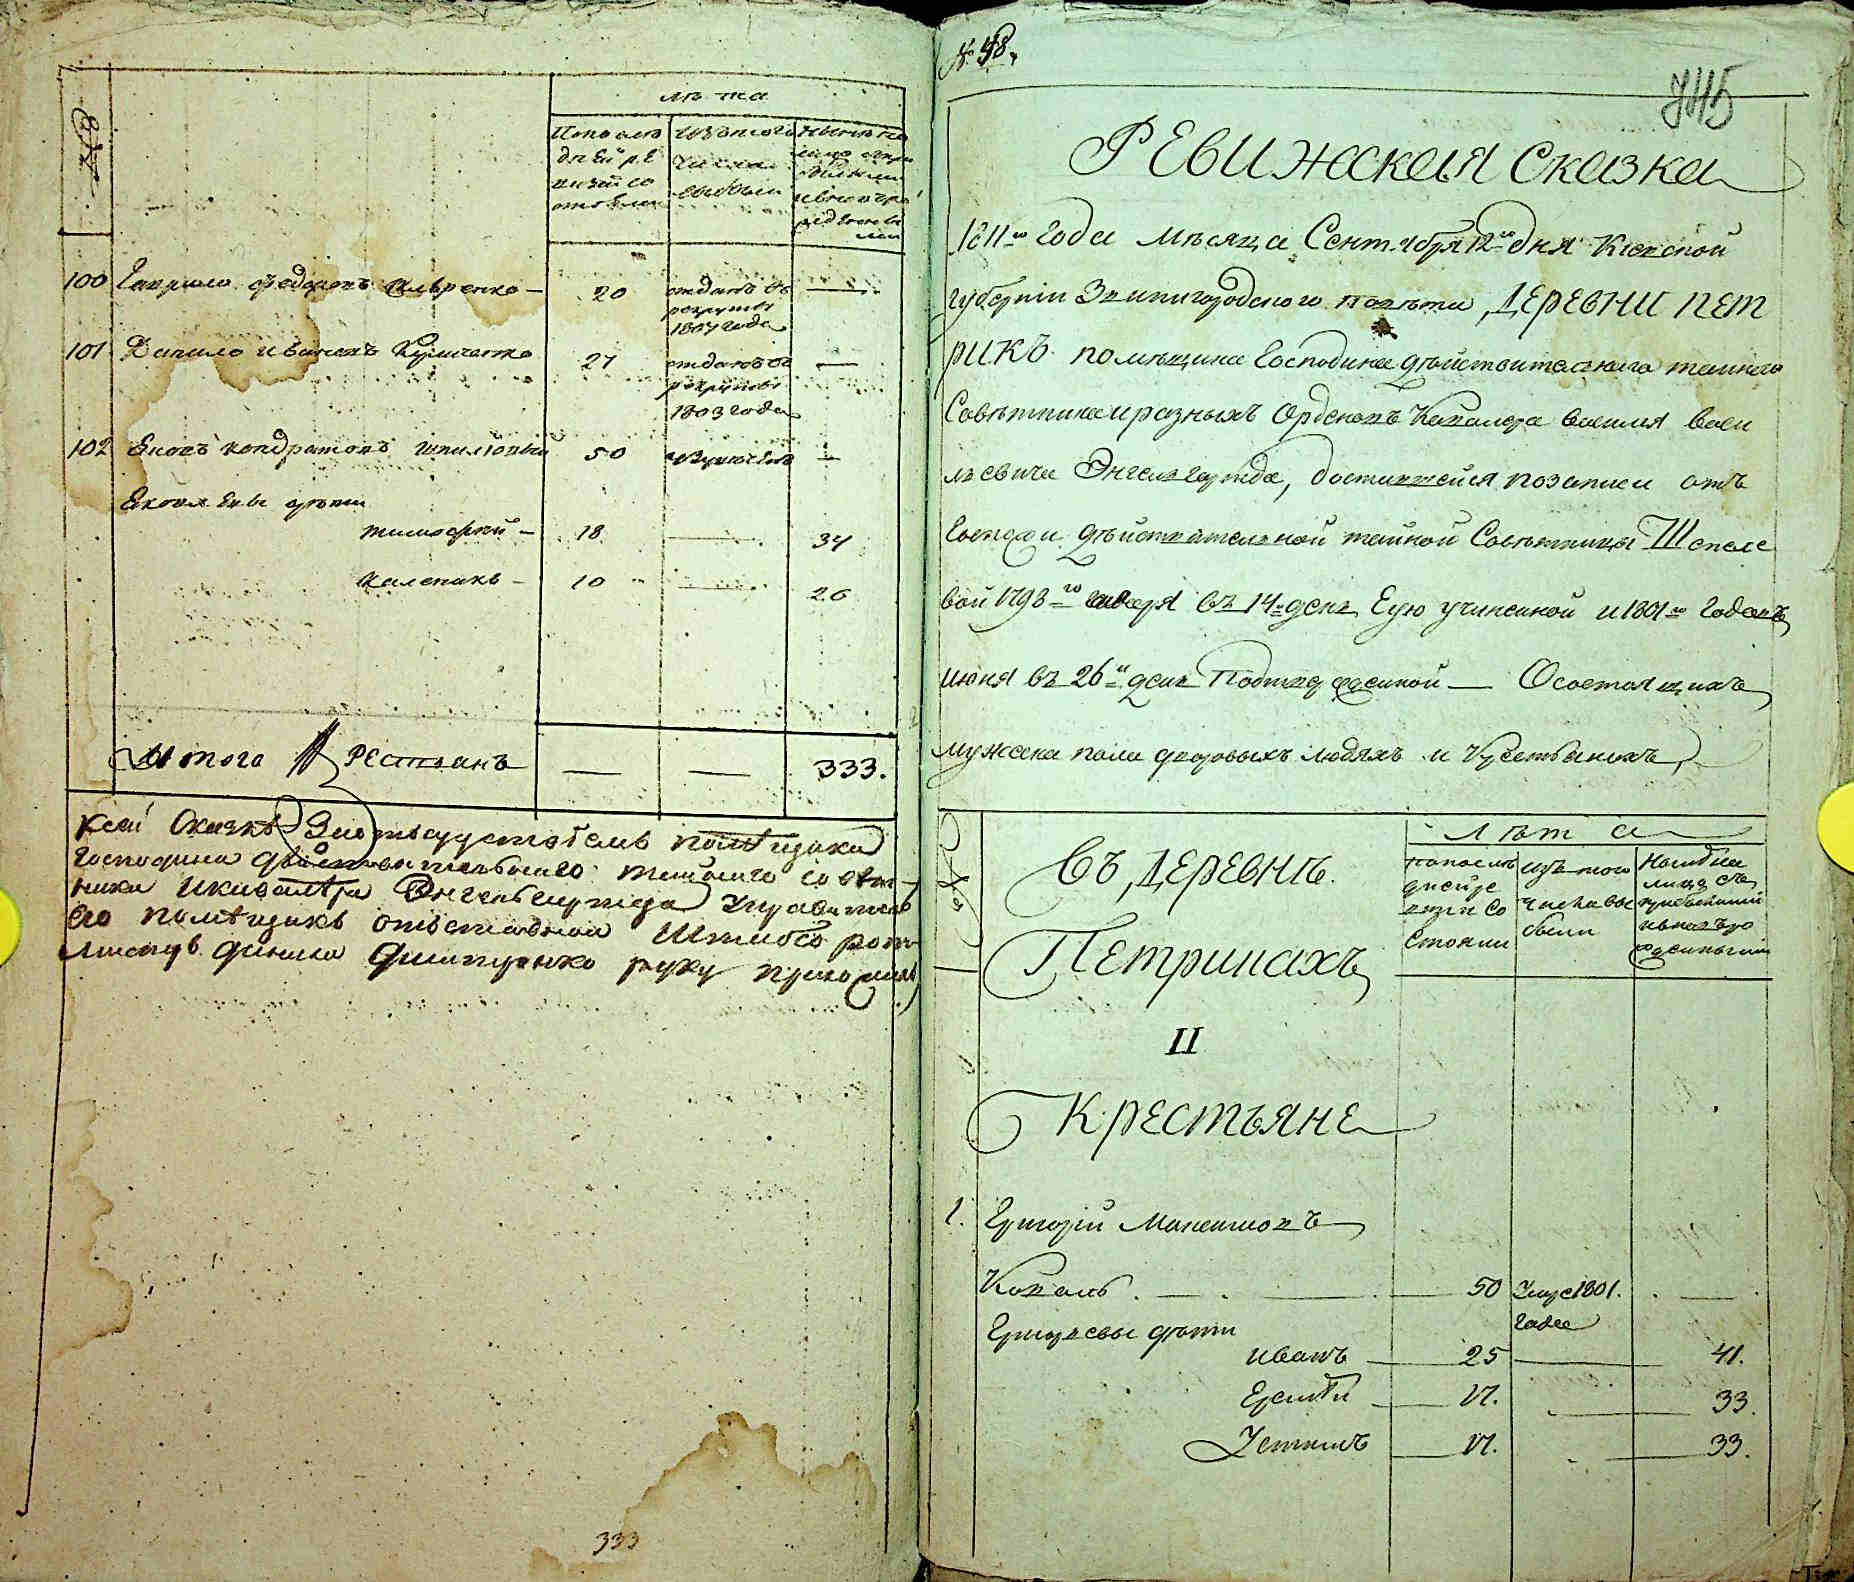 лѣта
По послѣ
дней ре
визіи со
стояли
изъ того
числа
выбыли
ныне на
лицо съ при
былыми
и вновь ро
жденны
ми
100 Гаврило Федоровъ 20 отданъ въ
рекруты
1807 года
101 Данило Ивановъ 27 отданъ въ
рекруты
1803 года
102 Яковъ Кондратовъ 50
Яковлевы дѣти
Тимофей 18 34
10 26
Итого Крестьянъ 333.
К сей Сказкѣ За отъсудствіемъ помѣщика
Господина действительнаго тайнаго совѣт
ника и кавалѣра Энгельгарта Управитель
его помѣщикъ отъставной Штабсъ рот
мистръ руку приложилъ
333
№ 48.
745
Ревижская сказка
1811го Года Мѣсяца Сентября 12го дня Кіевской
Губерніи Звинигородского повѣта, Деревни Пет
рикъ помѣщика Господина дѣйствительнаго тайнаго
Совѣтника и разныхъ Орденовъ Кавалера Василія Васи
льевича Энгельгардта, доставшейся по записи отъ
Госпожи дѣйствительной тайной Совѣтницы Шепеле
вой 1793го въ 14 день Ею учиненной и 1801го Года
июня въ 26й день Подтвержденной — О состоящихъ
мужеска пола дворовыхъ людяхъ и Крестьянахъ,
Въ Деревнѣ
Петрикахъ
II
Крестьяне
Лѣта
по послѣ
дней ре
визіи со
стояли
изъ того
числа вы
были
Ныне на
лицо съ
прибылыми
и вновь ро
жденными
1. Григорій Максимовъ
Коваль 50 Умре 1801.
Года
Григорьевы дѣти
Иванъ 25 41.
Ерсмѣй 17. 33.
Устимъ 17. 33.